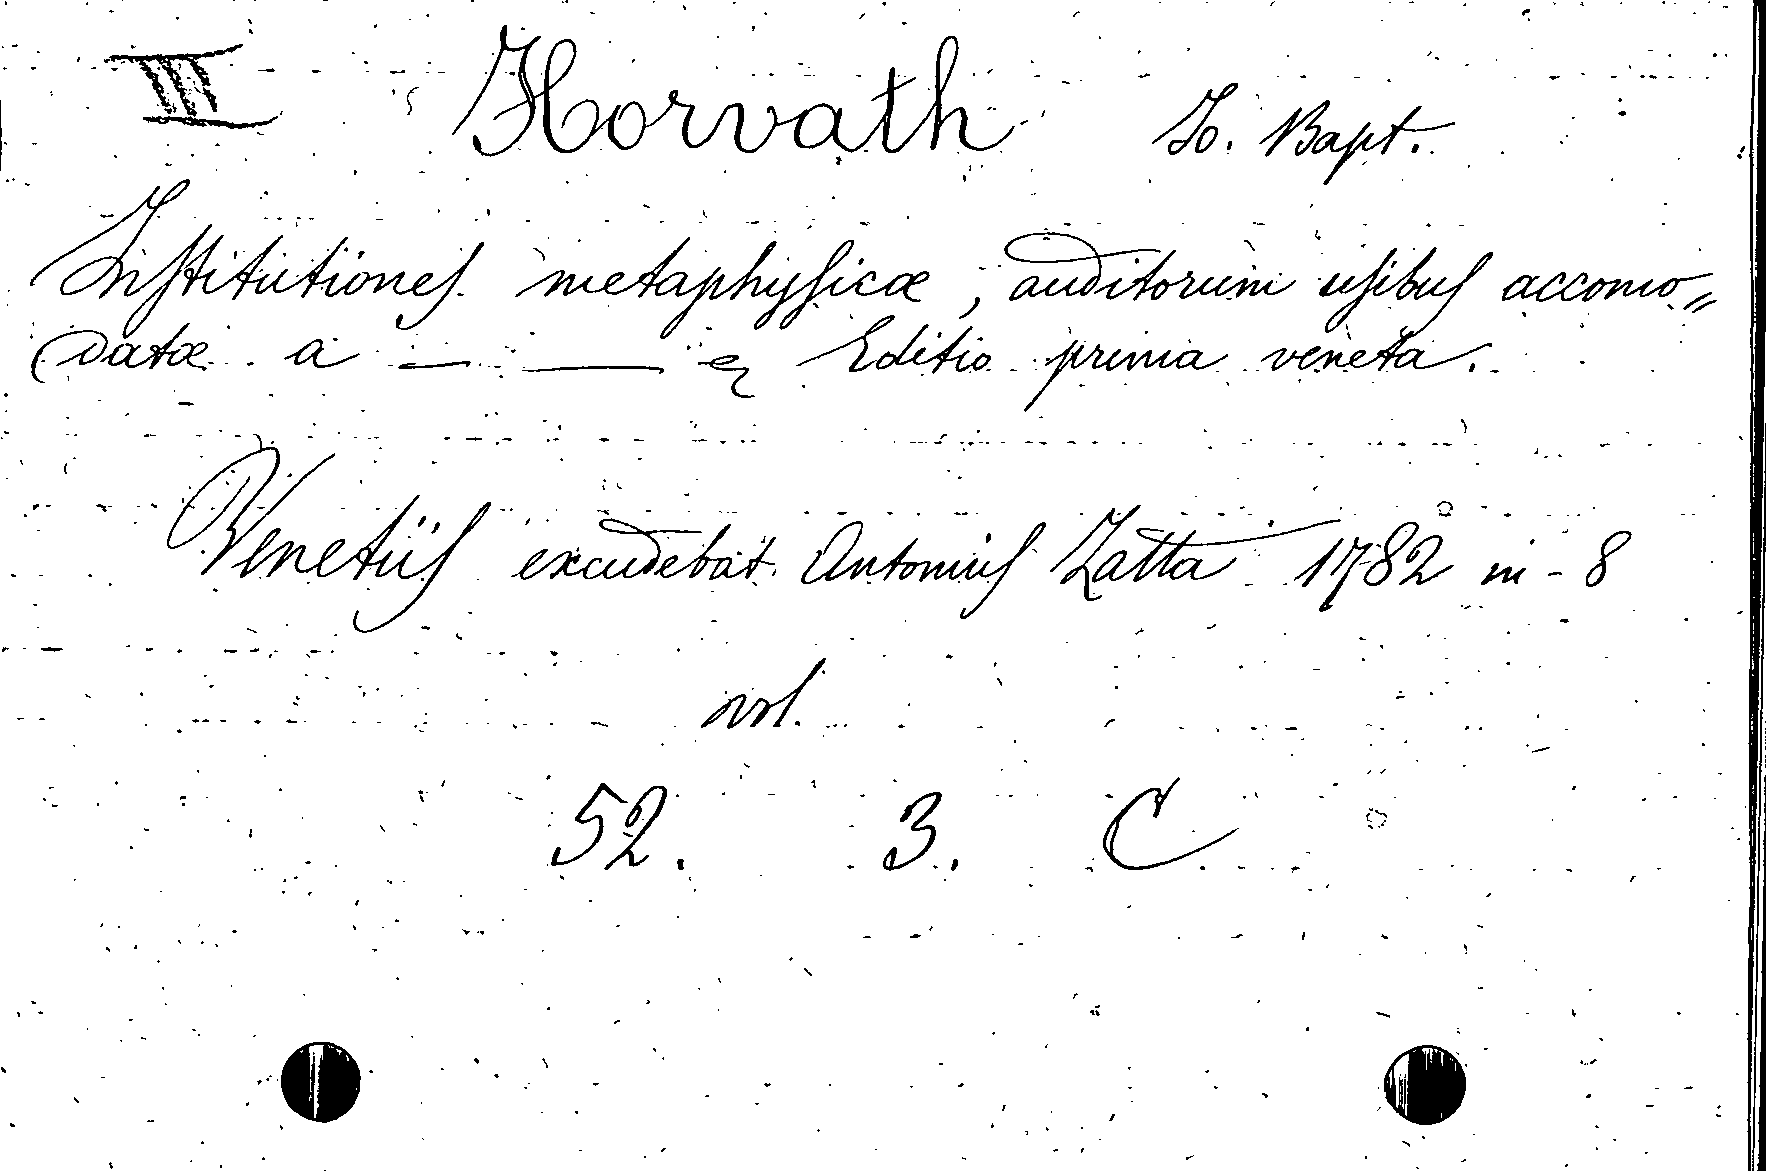 III Horvath Jo. Bapt.
Institutiones metaphysicæ, auditorum usibus accomo„
datæ a — — & Editio prima veneta.
Venetiis excudebat Antonius Zatta 1782 in-8
vol.
52. 3. C